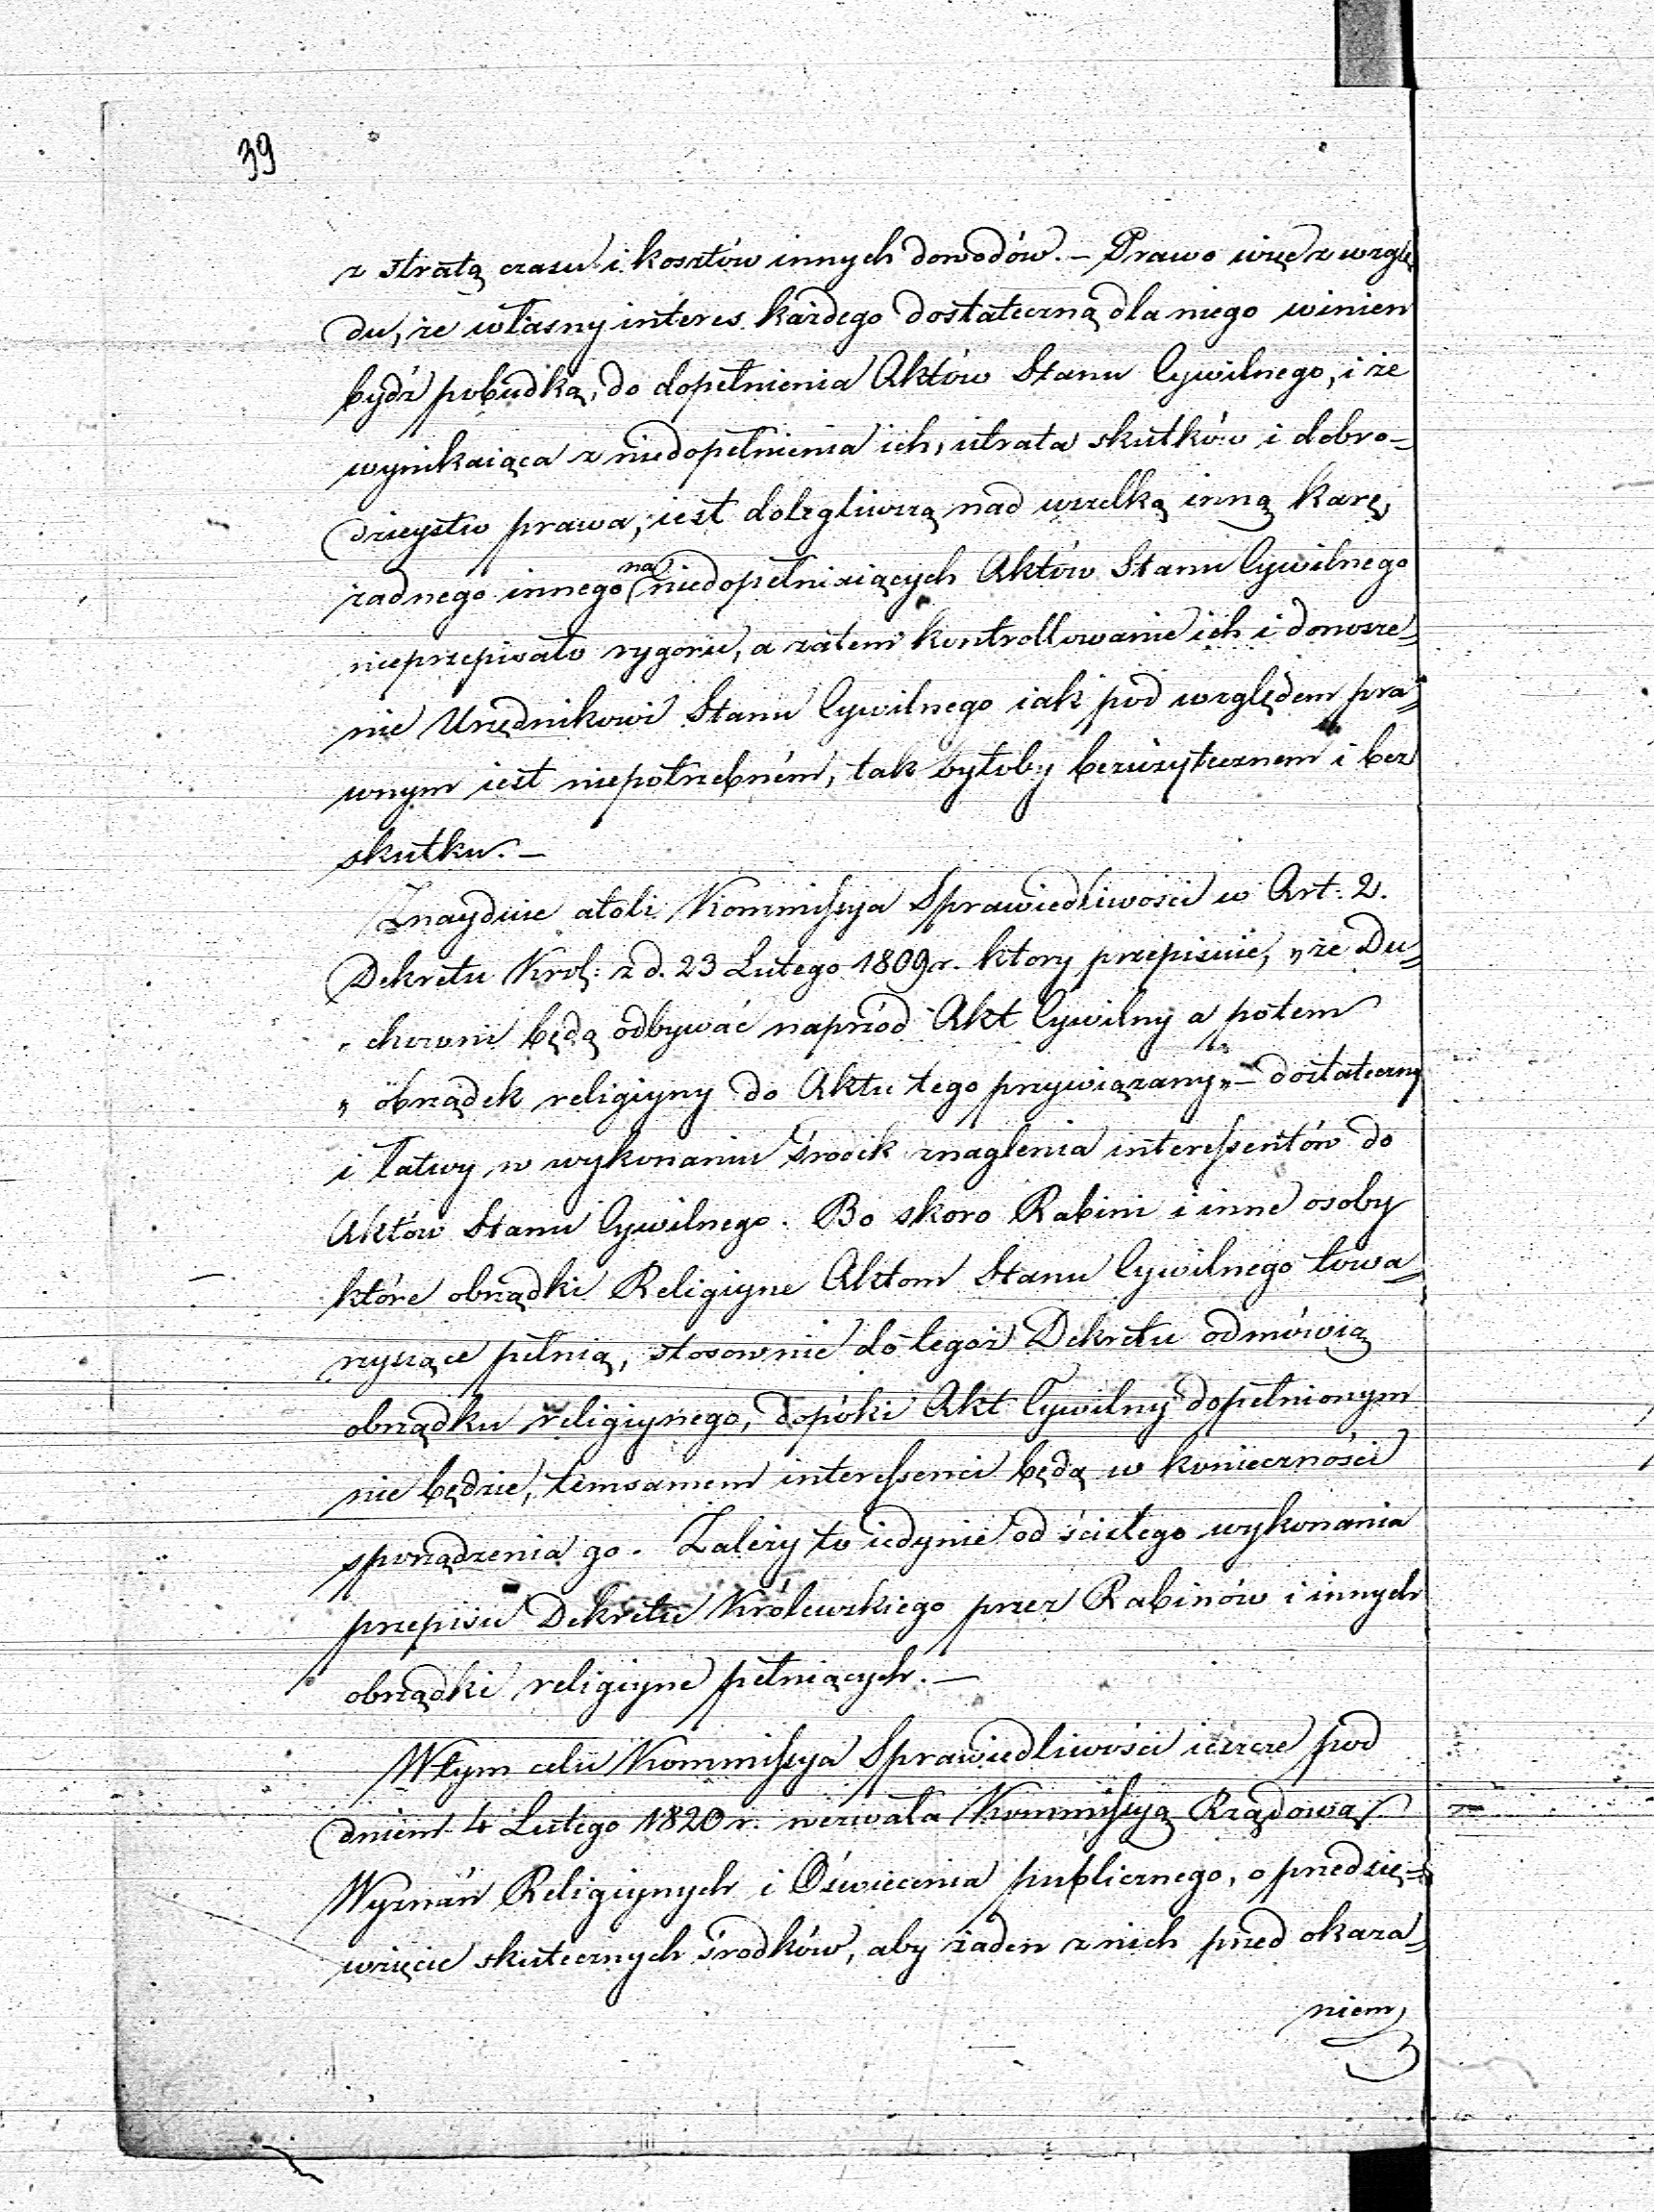 39
z stratą czasu i kosztów innych dowodów. – Prawo więc z wzglę
du, że własny interes każdego dostateczną dla niego winien
bydź pobudką, do dopełnienia Aktów Stanu Cywilnego, i że
wynikaiąca z niedopełnienia ich, utrata skutków i dobro-
dzieystw prawa, iest dolegliwszą nad wszelką inną karę,
żadnego innego na niedopełniaiących Aktów Stanu Cywilnego
nieprzepisało rygoru, a zatem kontrollowanie ich i donosze-
nie Urzędnikowi Stanu Cywilnego iak pod względem pra-
wnym iest niepotrzebném, tak byłoby bezużytecznem i bez
skutku. –
Znayduie atoli Kommissya Sprawiedliwości w Art. 2.
Dekretu Krol: z d. 23 Lutego 1809 r. ktory przepisuie, „że Du-
„chowni będą odbywać naprzód Akt Cywilny a potem
„obrządek religiyny do Aktu tego przywiązany„ – dostateczny
i łatwy w wykonaniu środek znaglenia interessentów do
Aktów Stanu Cywilnego. Bo skoro Rabini i inne osoby
które obrządki Religiyne Aktom Stanu Cywilnego towa-
rzyszące pełnią, stosownie do tegoż Dekretu odmówią
obrządku religiynego, dopóki Akt Cywilny dopełnionym
nie będzie, temsamem interessenci będą w konieczności
sporządzenia go. Zależy to iedynie od ścisłego wykonania
przepisu Dekretu Królewskiego przez Rabinów i innych
obrządki religiyne pełniących. –
W tym celu Kommissya Sprawiedliwości ieszcze pod
dniem 4 Lutego 1820 r. wezwała Kommissyą Rządową
Wyznań Religiynych i Oświecenia publicznego, o przedsię-
wzięcie skutecznych środków, aby żaden z nich przed okaza-
niem